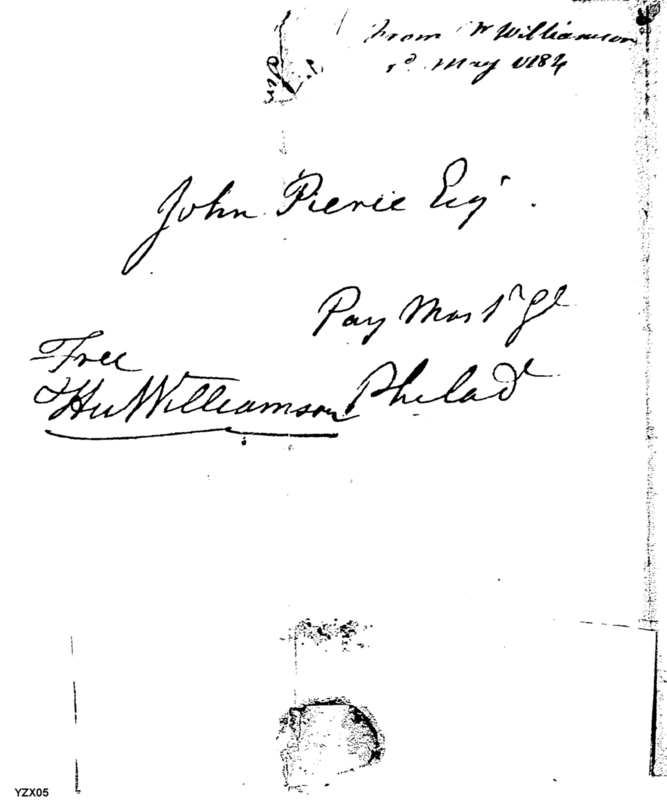 From Dr Williamson
May 1784
John Pierce Esqr.
Pay Mastr Gl
Free
Hu Williamson
Philad
YZX05